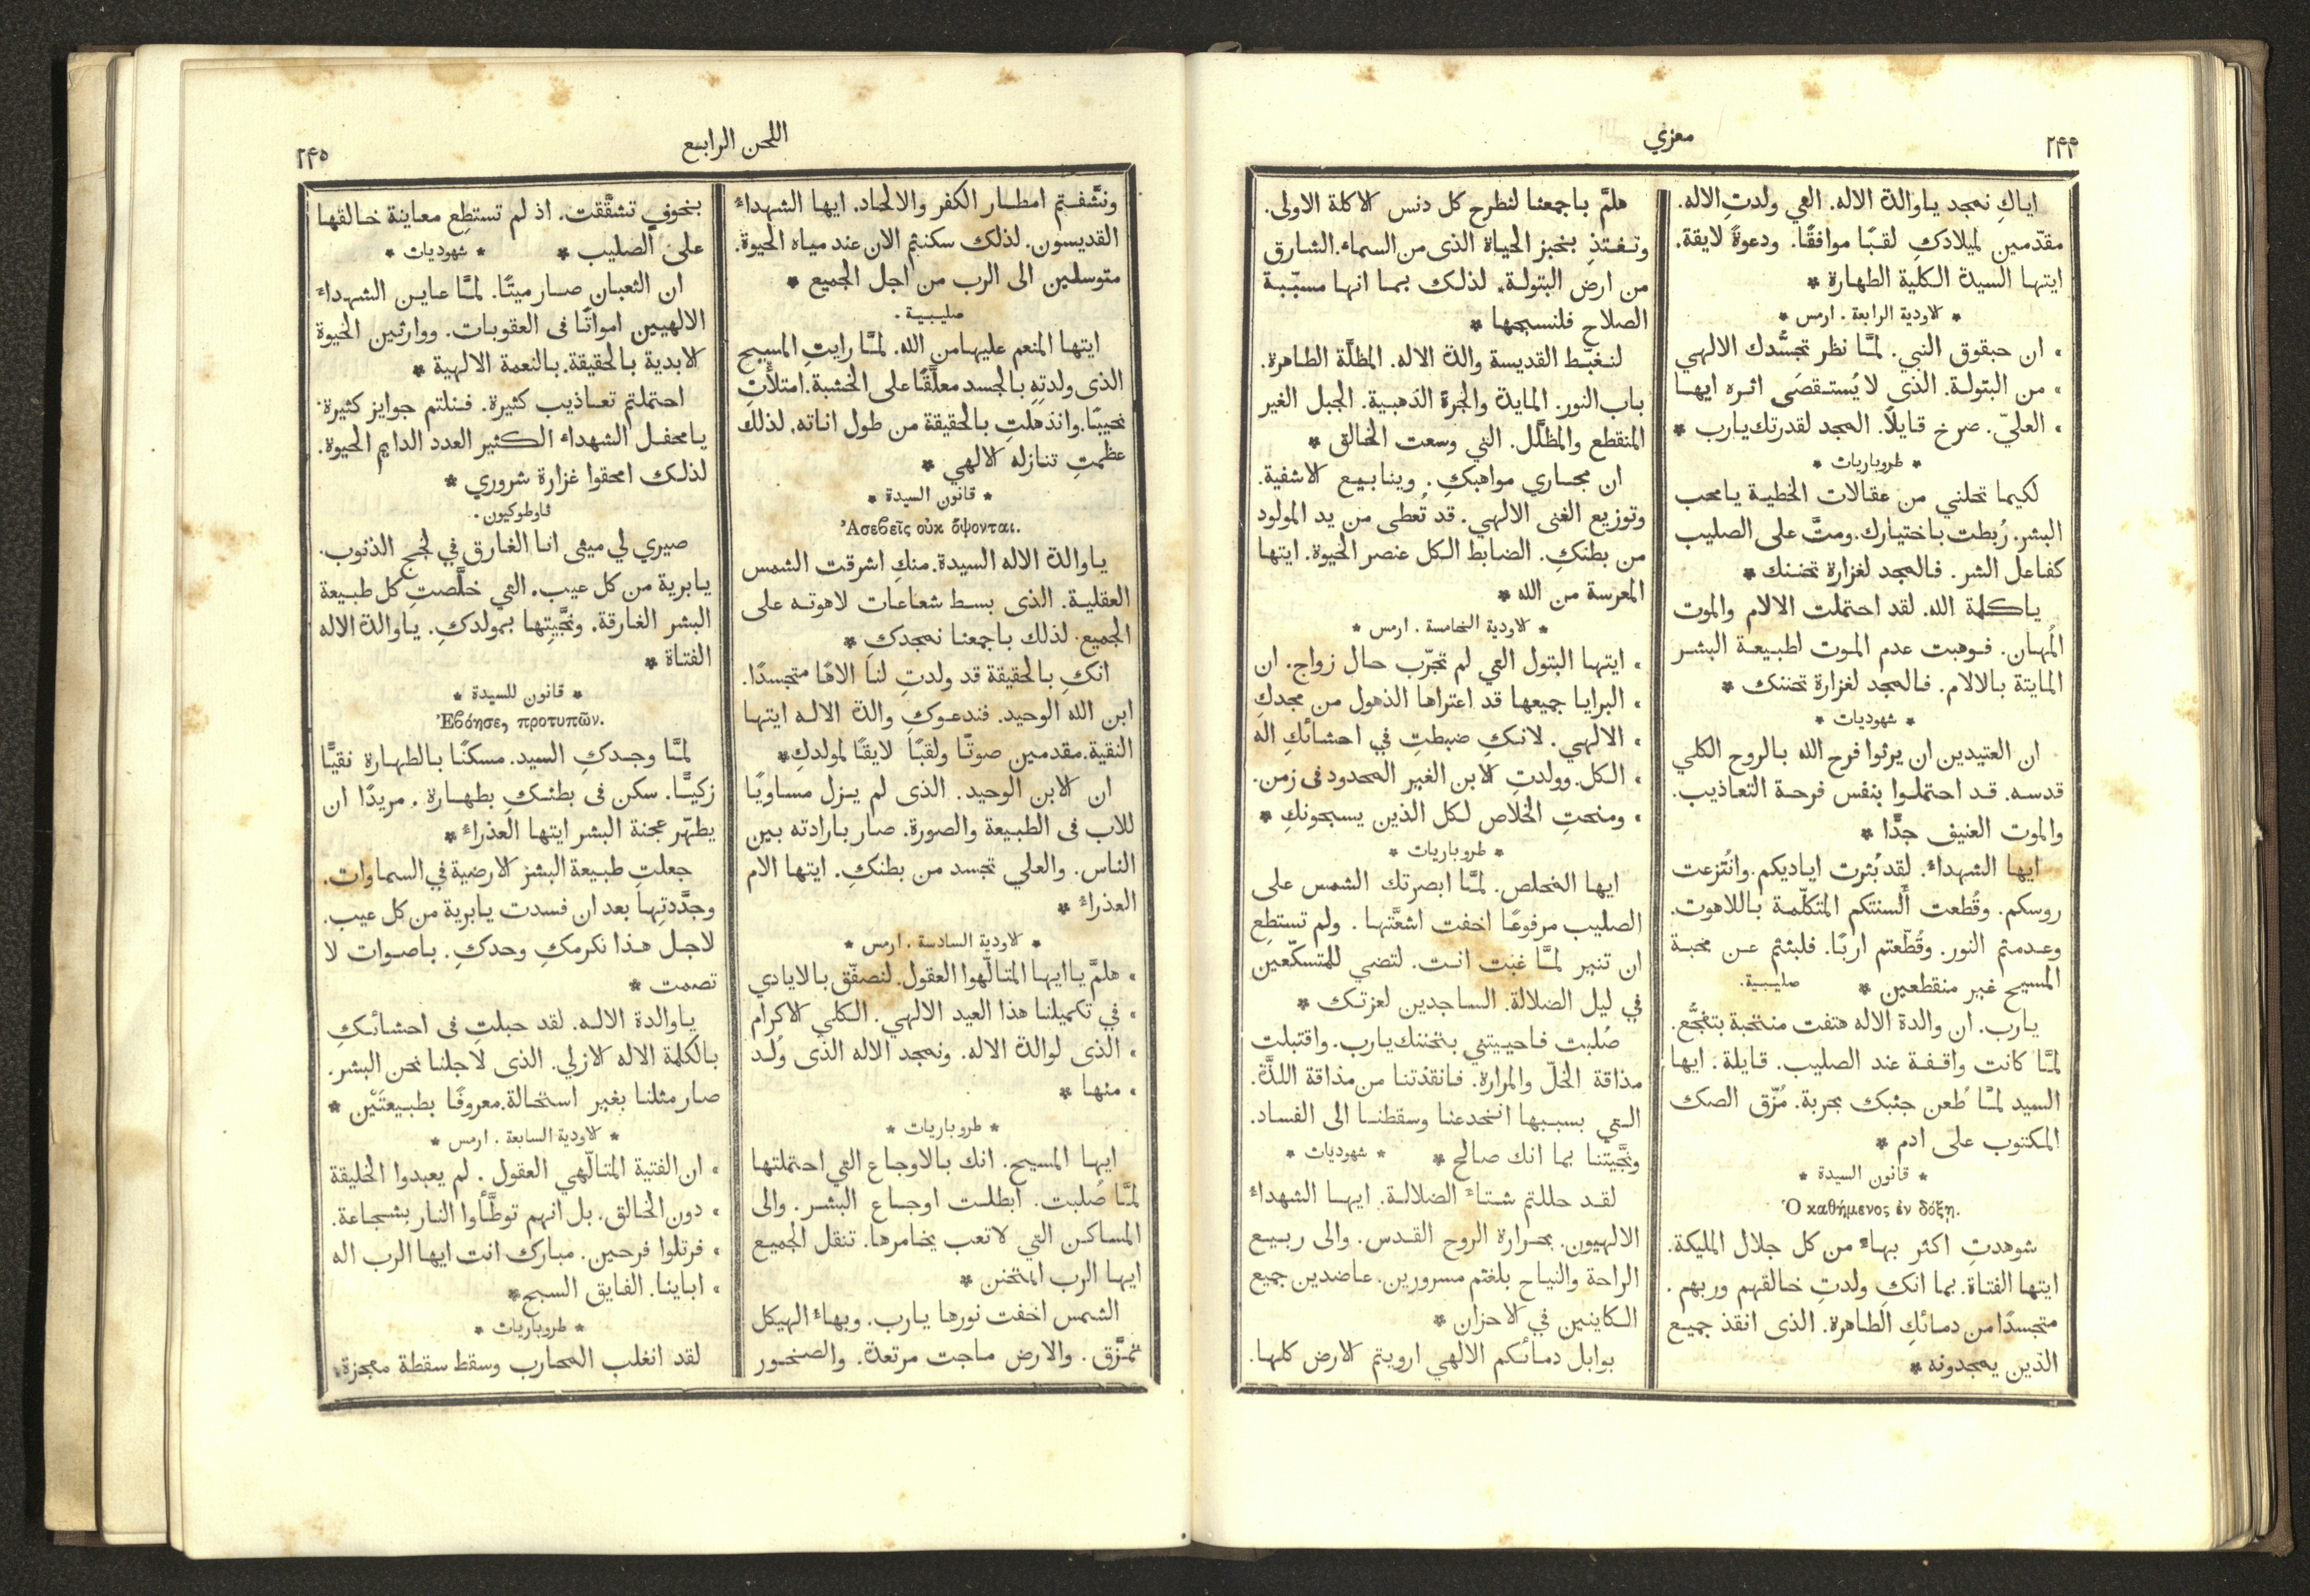 ٢٤٤
معزي
اياكِ نمجد ياوالدة الاله. التي ولدتِ الاله.
مقدّمين لميلادكِ لقبًا موافقًا. ودعوةً لايقة.
ايتها السيدة الكلية الطهارة *
* لاودية الرابعة . ارمس *
، ان حبقوق النبي. لمَّا نظر تجسُّدك الالهي
، من البتولة. الذي لا يُستقصَى اثره ايها
، العليّ. صرخ قايلًا. المجد لقدرتك يارب *
* طروباريات *
لكيما تحلني من عقالات الخطية يامحب
البشر. رُبطت باختيارك. ومتَّ على الصليب
كفاعل الشر. فالمجد لغزارة تحننك *
ياكلمة الله. لقد احتملت الالام والموت
المُهان. فوهبت عدم الموت لطبيعة البشر
المايتة بالالام. فالمجد لغزارة تحننك *
* شهوديات *
ان العتيدين ان يرثوا فرح الله بالروح الكلي
قدسه. قد احتملوا بنفس فرحة التعاذيب.
والموت العنيف جدًّا *
ايها الشهداءُ. لقد بُثرت اياديكم. وانتُزعت
روسكم. وقُطعت ألسنتكم المتكلّمة باللاهوت.
وعدمتم النور. وقُطّعتم اربًا. فلبثتم عن محبة
المسيح غير منقطعين * صليبية.
يارب. ان والدة الاله هتفت منتحبة بتفجُّع.
لمَّا كانت واقفة عند الصليب. قايلة. ايها
السيد لمَّا طُعن جنبك بحربة. مُزّق الصك
المكتوب على ادم *
* قانون السيدة *
Ὁ καθήμενος ἐν δόξῃ.
شوهدتِ اكثر بهاءً من كل جلال المليكة.
ايتها الفتاة. بما انكِ ولدتِ خالقهم وربهم.
متجسدًا من دمائكِ الطاهرة. الذى انقذ جميع
الذين يمجدونه *
هلمَّ باجمعنا لنطرح كل دنس لاكلة الاولى.
وتغتذِ بخبز الحياة الذى من السماء. الشارق
من ارض البتولة. لذلك بما انها مسبّبة
الصلاح فلنسبحها *
لنغبّط القديسة والدة الاله. المظلَّة الطاهرة.
باب النور. المايدة والجرة الذهبية. الجبل الغير
المنقطع والمظلَّل. التي وسعت الخالق *
ان مجاري مواهبكِ. وينابيع لاشفية.
وتوزيع الغنى الالهي. قد تُعطى من يد المولود
من بطنكِ. الضابط الكل عنصر الحيوة. ايتها
المعرسة من الله *
* لاودية الخامسة . ارمس *
، ايتها البتول التي لم تجرّب حال زواج. ان
، البرايا جميعها قد اعتراها الذهول من مجدكِ
، الالهي. لانكِ ضبطتِ في احشائكِ اله
، الكل. وولدتِ لابن الغير المحدود فى زمن.
، ومنحتِ الخلاص لكل الذين يسبحونكِ *
* طروباريات *
ايها المخلص. لمَّا ابصرتك الشمس على
الصليب مرفوعًا اخفت اشعَّتها. ولم تستطِع
ان تنير لمَّا غبت انت. لتضي للمتسكّعين
في ليل الضلالة. الساجدين لعزتك *
صُلبت فاحييتني بتحننك يارب. واقتبلت
مذاقة الخلّ والمرارة. فانقذتنا من مذاقة اللذَّة.
التي بسببها انخدعنا وسقطنا الى الفساد.
ونجَّيتنا بما انك صالح * * شهوديات *
لقد حللتم شتاءَ الضلالة. ايها الشهداءُ
الالهيون. بحرارة الروح القدس. والى ربيع
الراحة والنياح بلغتم مسرورين. عاضدين جميع
الكاينين في لاحزان *
بوابل دمائكم الالهي ارويتم لارض كلها.
اللحن الرابع
٢٤٥
ونشَّفتم امطار الكفر والالحاد. ايها الشهداءُ
القديسون. لذلك سكنتم الان عند مياه الحيوة.
متوسلين الى الرب من اجل الجميع *
صليبية.
ايتها المنعم عليها من الله. لمَّا رايتِ المسيح
الذى ولدتِهِ بالجسد معلَّقًا على الخشبة. امتلأتِ
نحيبًا. واندهلتِ بالحقيقة من طول اناته. لذلك
عظمتِ تنازله لالهي *
* قانون السيدة *
Ἀσεβεῖς οὐκ ὄψονται.
ياوالدة الاله السيدة. منكِ اشرقت الشمس
العقلية. الذى بسط شعاعات لاهوته على
الجميع. لذلك باجمعنا نمجدكِ *
انكِ بالحقيقة قد ولدتِ لنا الاهًا متجسدًا.
ابن الله الوحيد. فندعوكِ والدة الاله ايتها
النقية. مقدمين صوتًا ولقبًا لايقًا لمولدكِ *
ان لابن الوحيد. الذى لم يزل مساويًا
للاب فى الطبيعة والصورة. صار بارادته بين
الناس. والعلي تجسد من بطنكِ. ايتها الام
العذراءُ *
* لاودية السادسة . ارمس *
، هلمَّ ياايها المتالّهوا العقول. لنصفّق بالايادي
، في تكميلنا هذا العيد الالهي. الكلي لاكرام
، الذى لوالدة الاله. ونمجد الاله الذى وُلد
، منها *
* طروباريات *
ايها المسيح. انك بالاوجاع التي احتملتها
لمَّا صُلبت. ابطلت اوجاع البشر. والى
المساكن التي لاتعب يخامرها. تنقل الجميع
ايها الرب المتحنن *
الشمس اخفت نورها يارب. وبهاءُ الهيكل
تمزَّق. والارض ماجت مرتعدة. والصخور
بخوفٍ تشقَّقت. اذ لم تستطِع معاينة خالقها
على الصليب * * شهوديات *
ان الثعبان صار ميتًا. لمَّا عاين الشهداءَ
الالهيين امواتًا فى العقوبات. ووارثين الحيوة
لابدية بالحقيقة. بالنعمة الالهية *
احتملتم تعاذيب كثيرة. فنلتم جوايز كثيرة.
يامحفل الشهداء الكثير العدد الدايم الحيوة.
لذلك امحقوا غزارة شروري *
ثاوطوكيون.
صيري لي مينى انا الغارق في لجج الذنوب.
يابرية من كل عيب. التي خلَّصتِ كل طبيعة
البشر الغارقة. ونجَّيتِها بمولدكِ. ياوالدة الاله
الفتاة *
* قانون للسيدة *
Ἐβόησε, προτυπῶν.
لمَّا وجدكِ السيد. مسكنًا بالطهارة نقيًّا
زكيًّا. سكن فى بطنكِ بطهارة. مريدًا ان
يطهّر عجنة البشر ايتها العذراءُ *
جعلتِ طبيعة البشر لارضية في السماوات.
وجدَّدتِها بعد ان فسدت يابرية من كل عيب.
لاجل هذا نكرمكِ وحدكِ. باصوات لا
تصمت *
ياوالدة الاله. لقد حبلتِ فى احشائكِ
بالكلمة الاله لازلي. الذى لاجلنا نحن البشر.
صار مثلنا بغير استحالة. معروفًا بطبيعتَيْن *
* لاودية السابعة . ارمس *
، ان الفتية المتالّهي العقول. لم يعبدوا الخليقة
، دون الخالق. بل انهم توطَّأوا النار بشجاعة.
، فرتلوا فرحين. مبارك انت ايها الرب اله
، اباينا. الفايق السبح *
* طروباريات *
لقد انغلب المحارب وسقط سقطة معجزة.